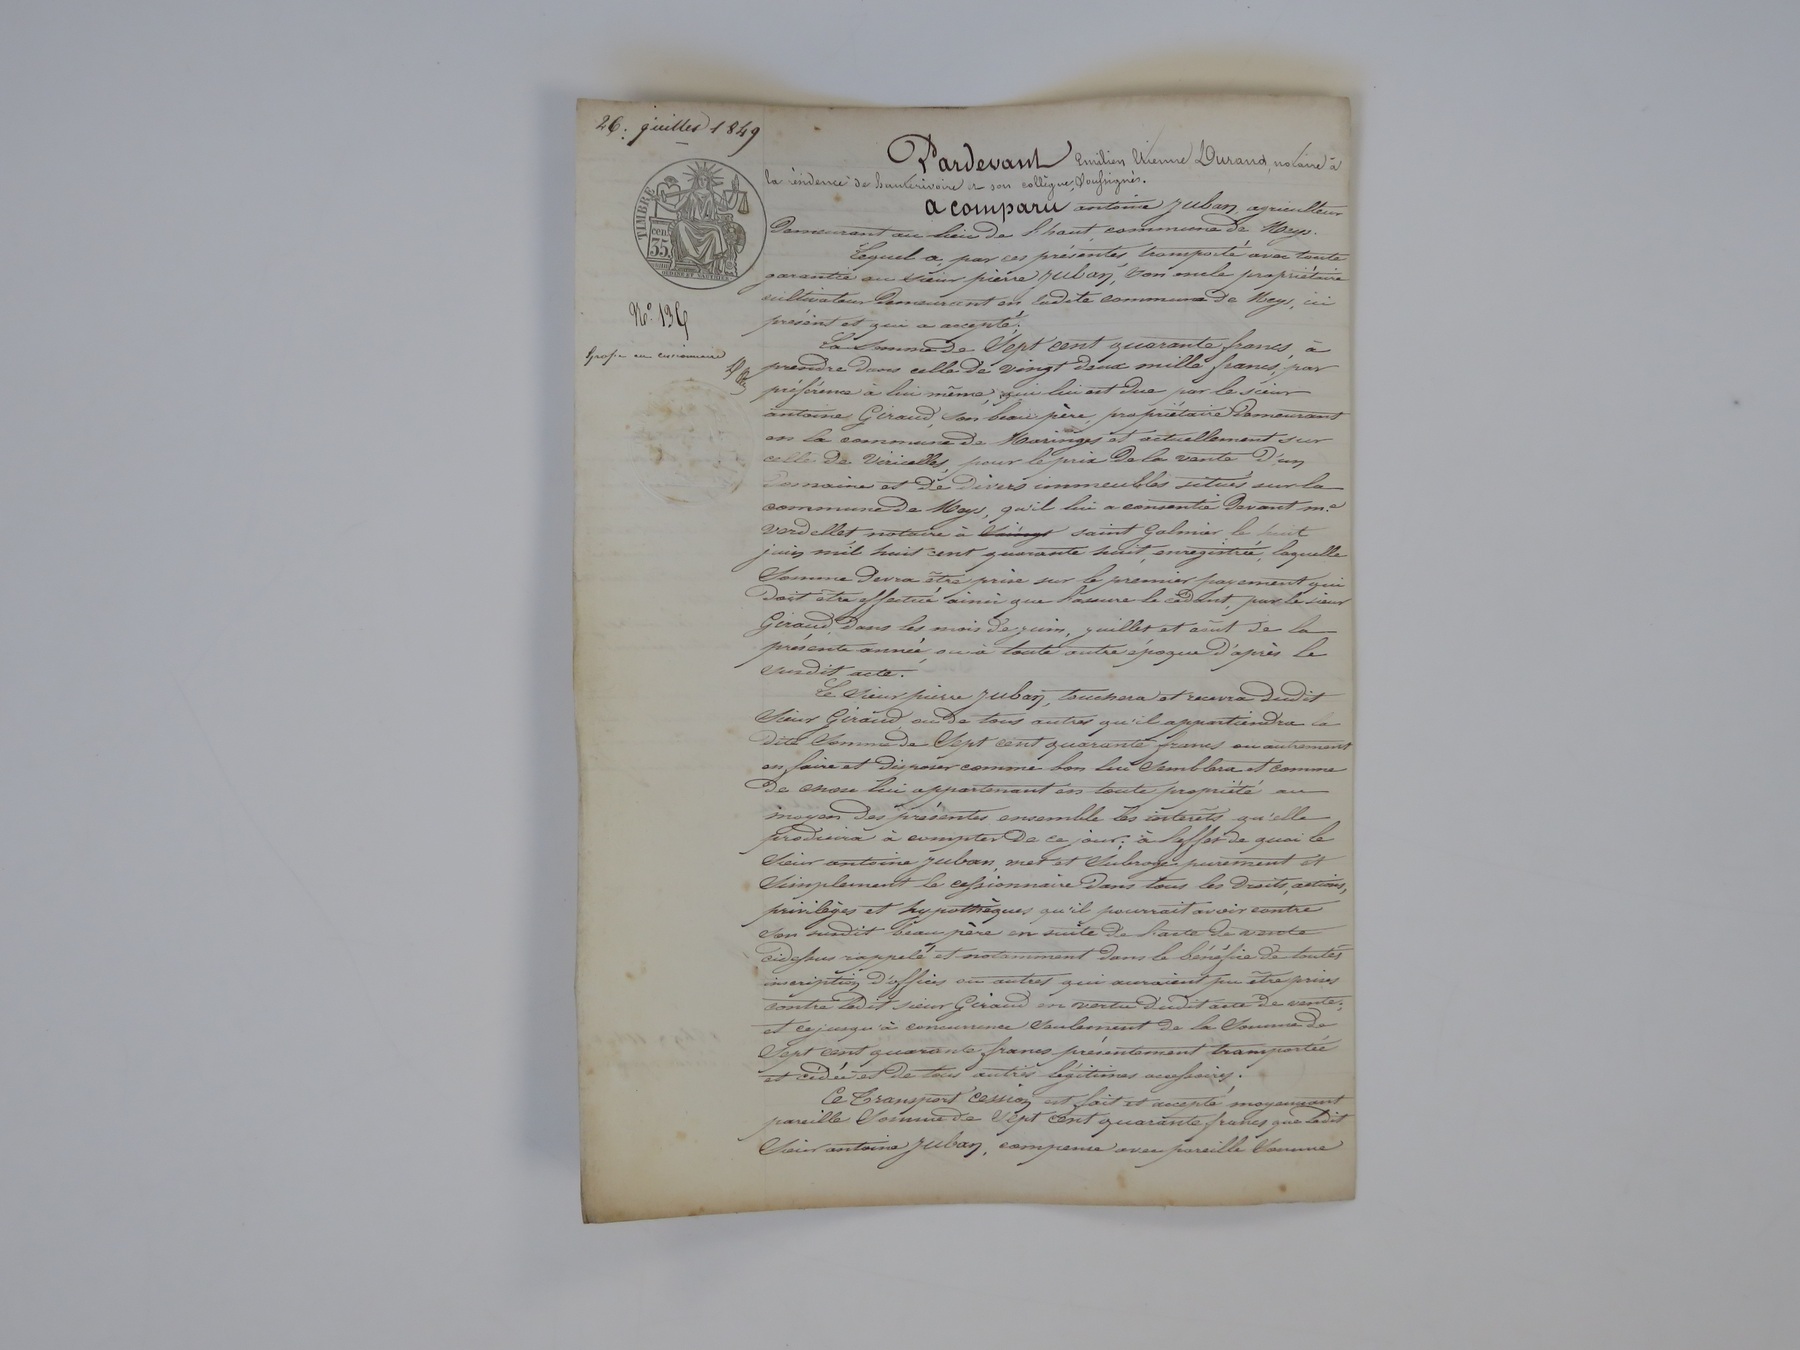 26. juillet 1849
TIMBRE
cen.
35
N°. 136
Grosse au cessionnaire
Pardevant Emilien Etienne Durand, notaire à
la résidence de hauterivoire et son collègue, soussignés.
a comparu antoine Juban, agriculteur
Demeurant au lieu de l'haut, commune de Meys.
Lequel a, par ces présentes transporté avec toute
garantie au sieur pierre Juban, propriétaire
cultivateur Demeurant en ladite commune de Meys, ici
présent et qui a accepté;
La Somme de Sept cent quarante francs, à
prendre dans celle de vingt deux mille francs, par
préférence à lui même, qui lui est due par le sieur
antoine Giraud, son beau père, propriétaire demeurant
en la commune de Maringes et actuellement sur
celle de Viricelles, pour le prix de la vente D'un
Domaine et de divers immeubles situés sur la
commune de Meys, qu'il lui a consentie Devant me
Verdellet notaire à saint Galmier, le huit
juin mil huit cent quarante huit, enregistrée, laquelle
Somme devra être prise sur le premier payement qui
doit être effectué ainsi que l'assure le cédant, par le sieur
Giraud, dans les mois de juin, juillet et août de la
présente année, ou à toute autre époque d'après le
susdit acte.
Le Sieur pierre Juban, touchera et recevra dudit
Sieur Giraud, ou de tous autres qu'il appartiendra la
dite Somme de Sept cent quarante francs ou autrement
en faire et disposer comme bon lui Semblera et comme
de chose lui appartenant en toute propriété au
moyen des présentes ensemble les intérêts qu'elle
produira à compter de ce jour; à l'effet de quoi le
Sieur antoine Juban, met et Subroge purement et
Simplement le cessionnaire dans tous les droits, actions,
privilèges et hypothèques qu'il pourrait avoir contre
Son susdit beau père en suite de l'acte de vente
cidessus rappelé et notamment dans le bénéfice de toutes
inscription d'offices ou autres qui auraient pu être prises
contre ledit sieur Giraud en vertu dudit acte de vente;
et ce jusqu'à concurrence Seulement de la Somme de
Sept cent quarante francs présentement transportée
et cédée et de tous autres légitimes accessoires.
Ce Transport Cession est fait et accepté moyennant
pareille Somme de Sept Cent quarante francs que ledit
Sieur antoine Juban, compense avec pareille Somme